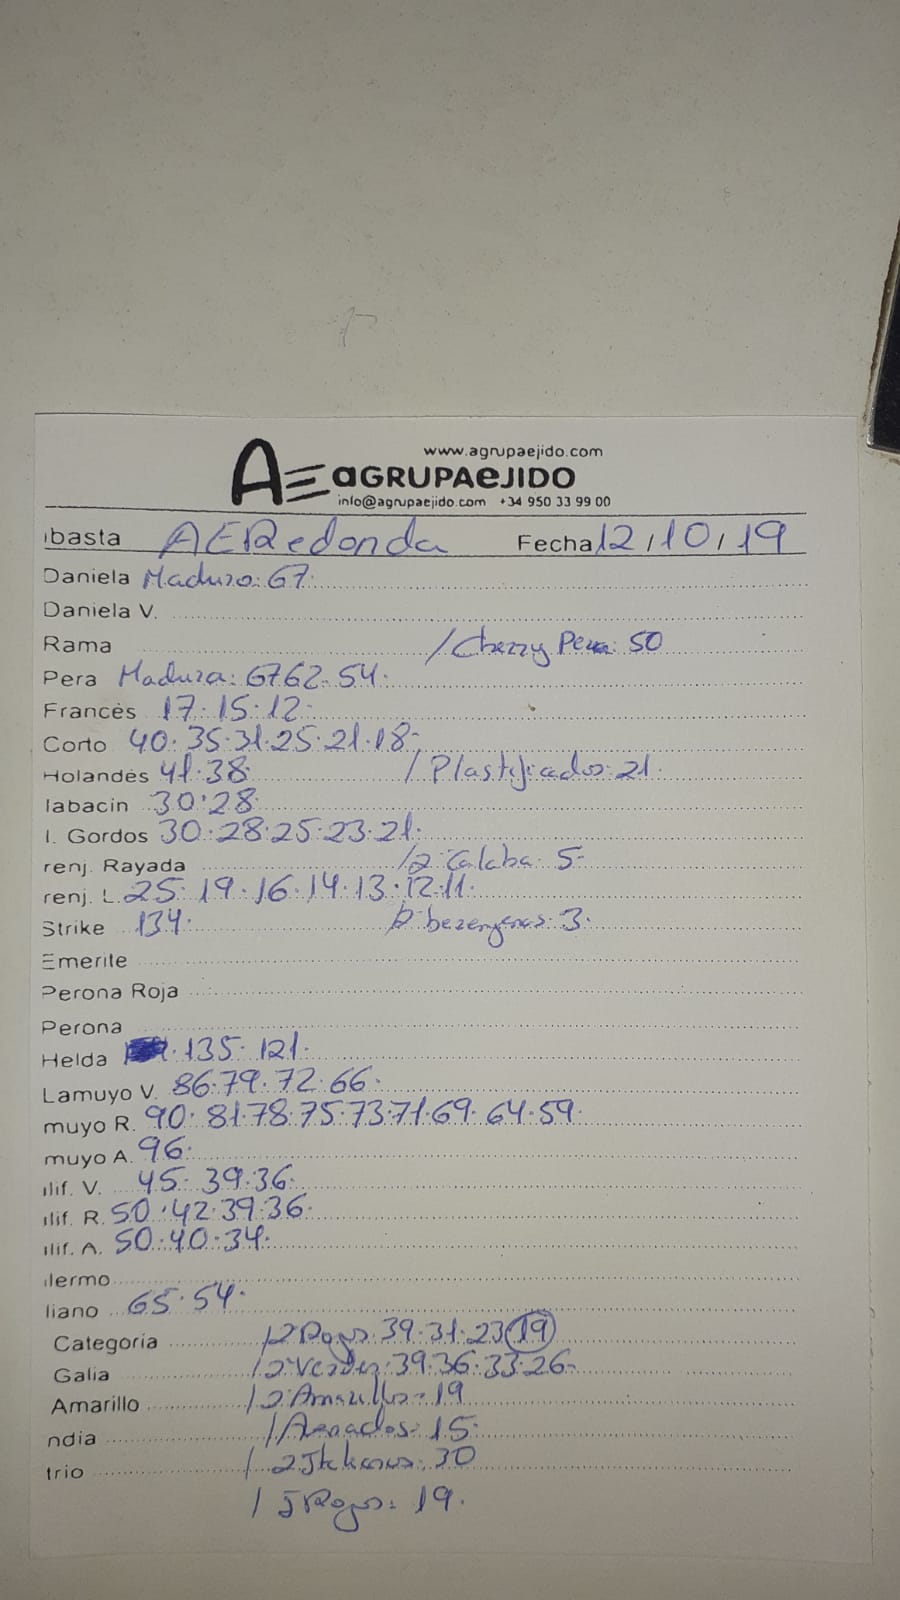 www.agrupaejido.com
AE aGRUPAeJIDO
info@agrupaejido.com +34 950 33 99 00
ubasta AERedonda Fecha 12/10/19
Daniela Maduro: 67.
Daniela V.
Rama / Cherry Pera: 50
Pera Madura: 67.62.54.
Francés 17.15.12.
Corto 40.35.31.25.21.18.
Holandés 41.38 / Plastificados: 21.
labacin 30.28.
I. Gordos 30.28.25.23.21.
renj. Rayada /2ª Calaba: 5.
renj. L. 25.19.16.14.13.12.11.
Strike 134. berenjenas: 3.
Emerite
Perona Roja
Perona
Helda .135.121.
Lamuyo V. 86.79.72.66.
muyo R. 90.81.78.75.73.71.69.64.59.
muyo A. 96.
ilif. V. 45.39.36.
ilif. R. 50.42.39.36.
ilif. A. 50.40.34.
ilermo
liano 65.54.
Categoría /2ª Rojos: 39.31.23 (19)
Galia /2ª Verdes: 39.36.33.26.
Amarillo /2ª Amarillos: 19
ndia / Asados: 15.
trio / 2ª Italianos: 30
/ J Rojos: 19.